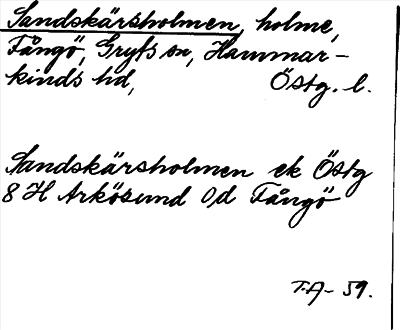 Sandskärsholmen, holme,
Fångö, Gryts sn, Hammar-
kinds hd, Östg. l.
Sandskärsholmen ek Östg
8 H Arkösund 0/d Fångö
T.A- 59.